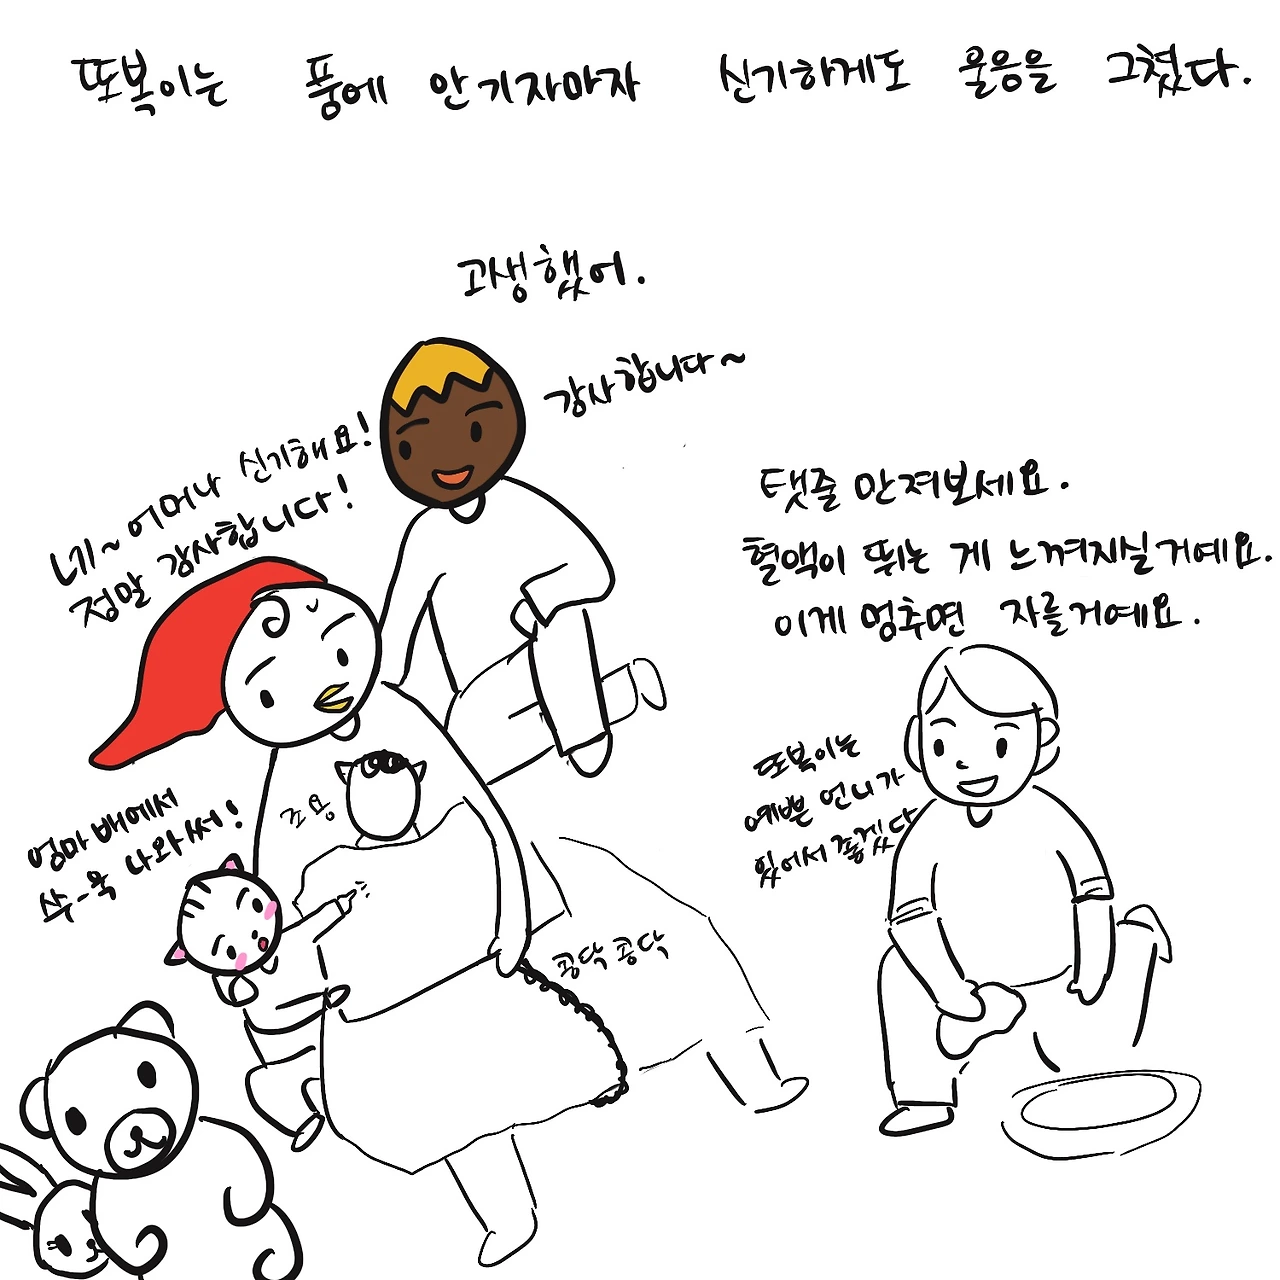 또복이는 풍에 안기자마자 신기하게도 울음을 그쳤다.
고생했어.
감사합니다~
네~ 어머나 신기해요!
정말 감사합니다!
탯줄 만져보세요.
혈액이 뛰는 게 느껴지실거예요.
이게 멈추면 자를거예요.
또복이는
예쁜 언니가
있어서 좋겠다
조용
엄마 배에서
쑤-욱 나와써!
콩닥 콩닥